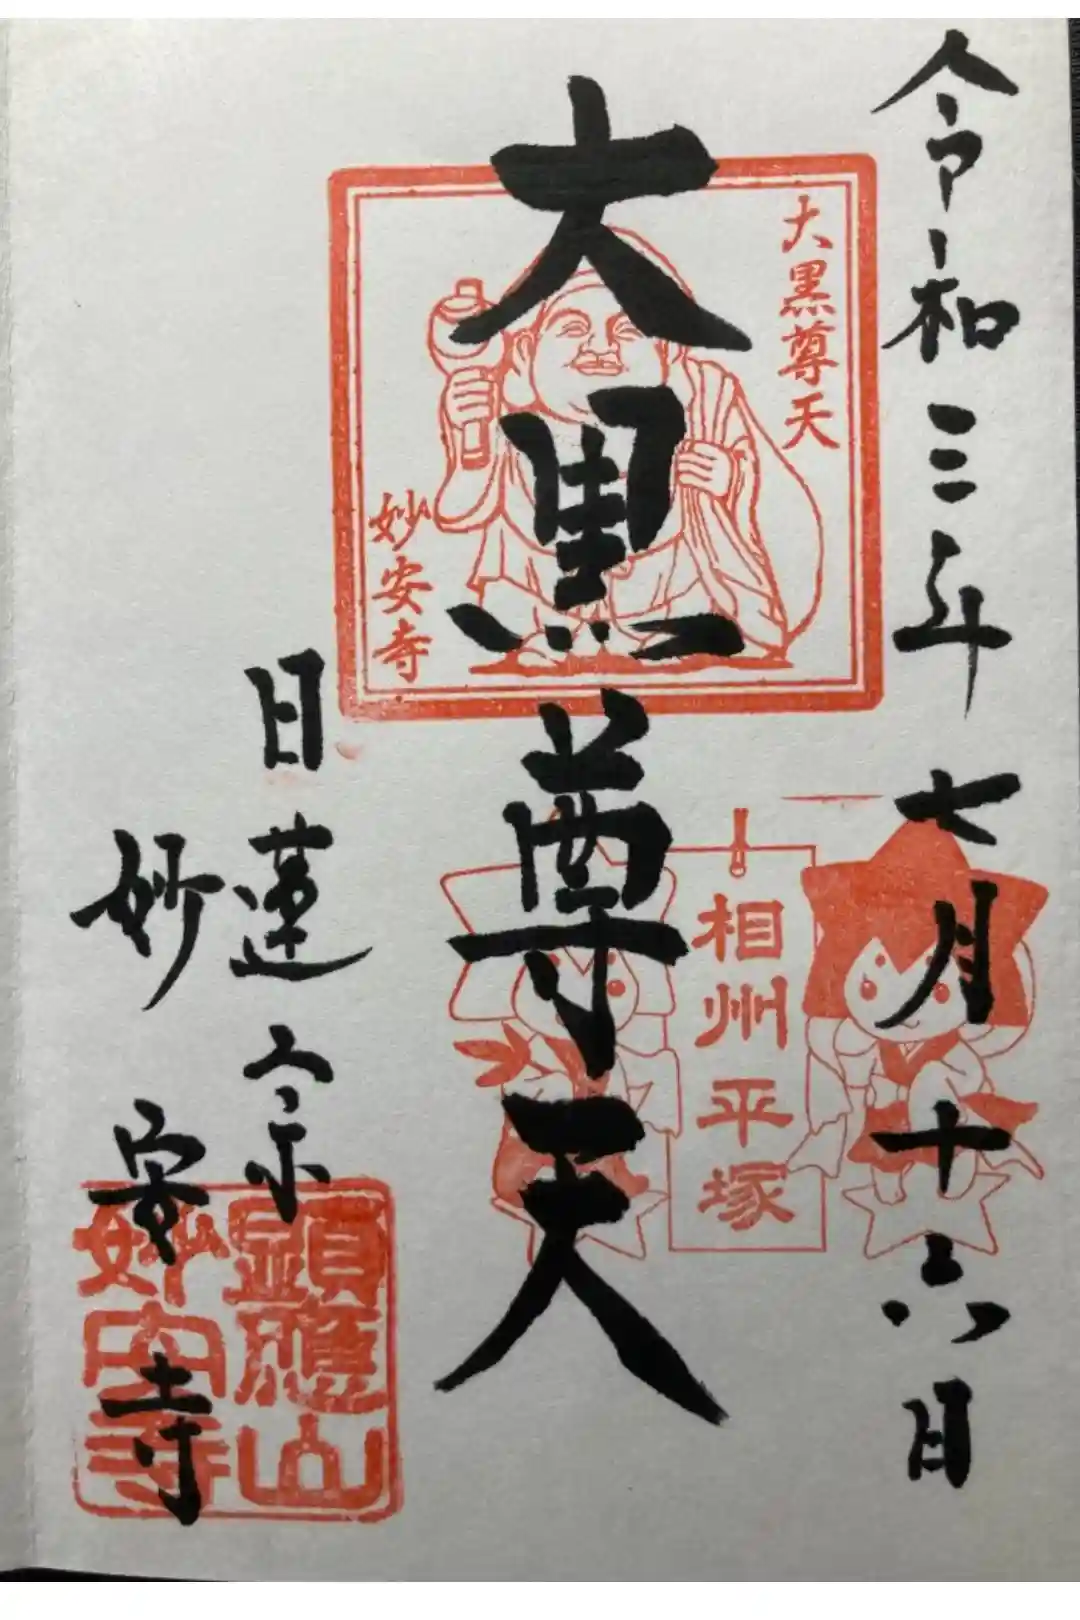 令和三年七月十六日
大黒尊天
大黒尊天
妙安寺
相州平塚
日蓮宗
妙安寺
顯應山
妙安寺